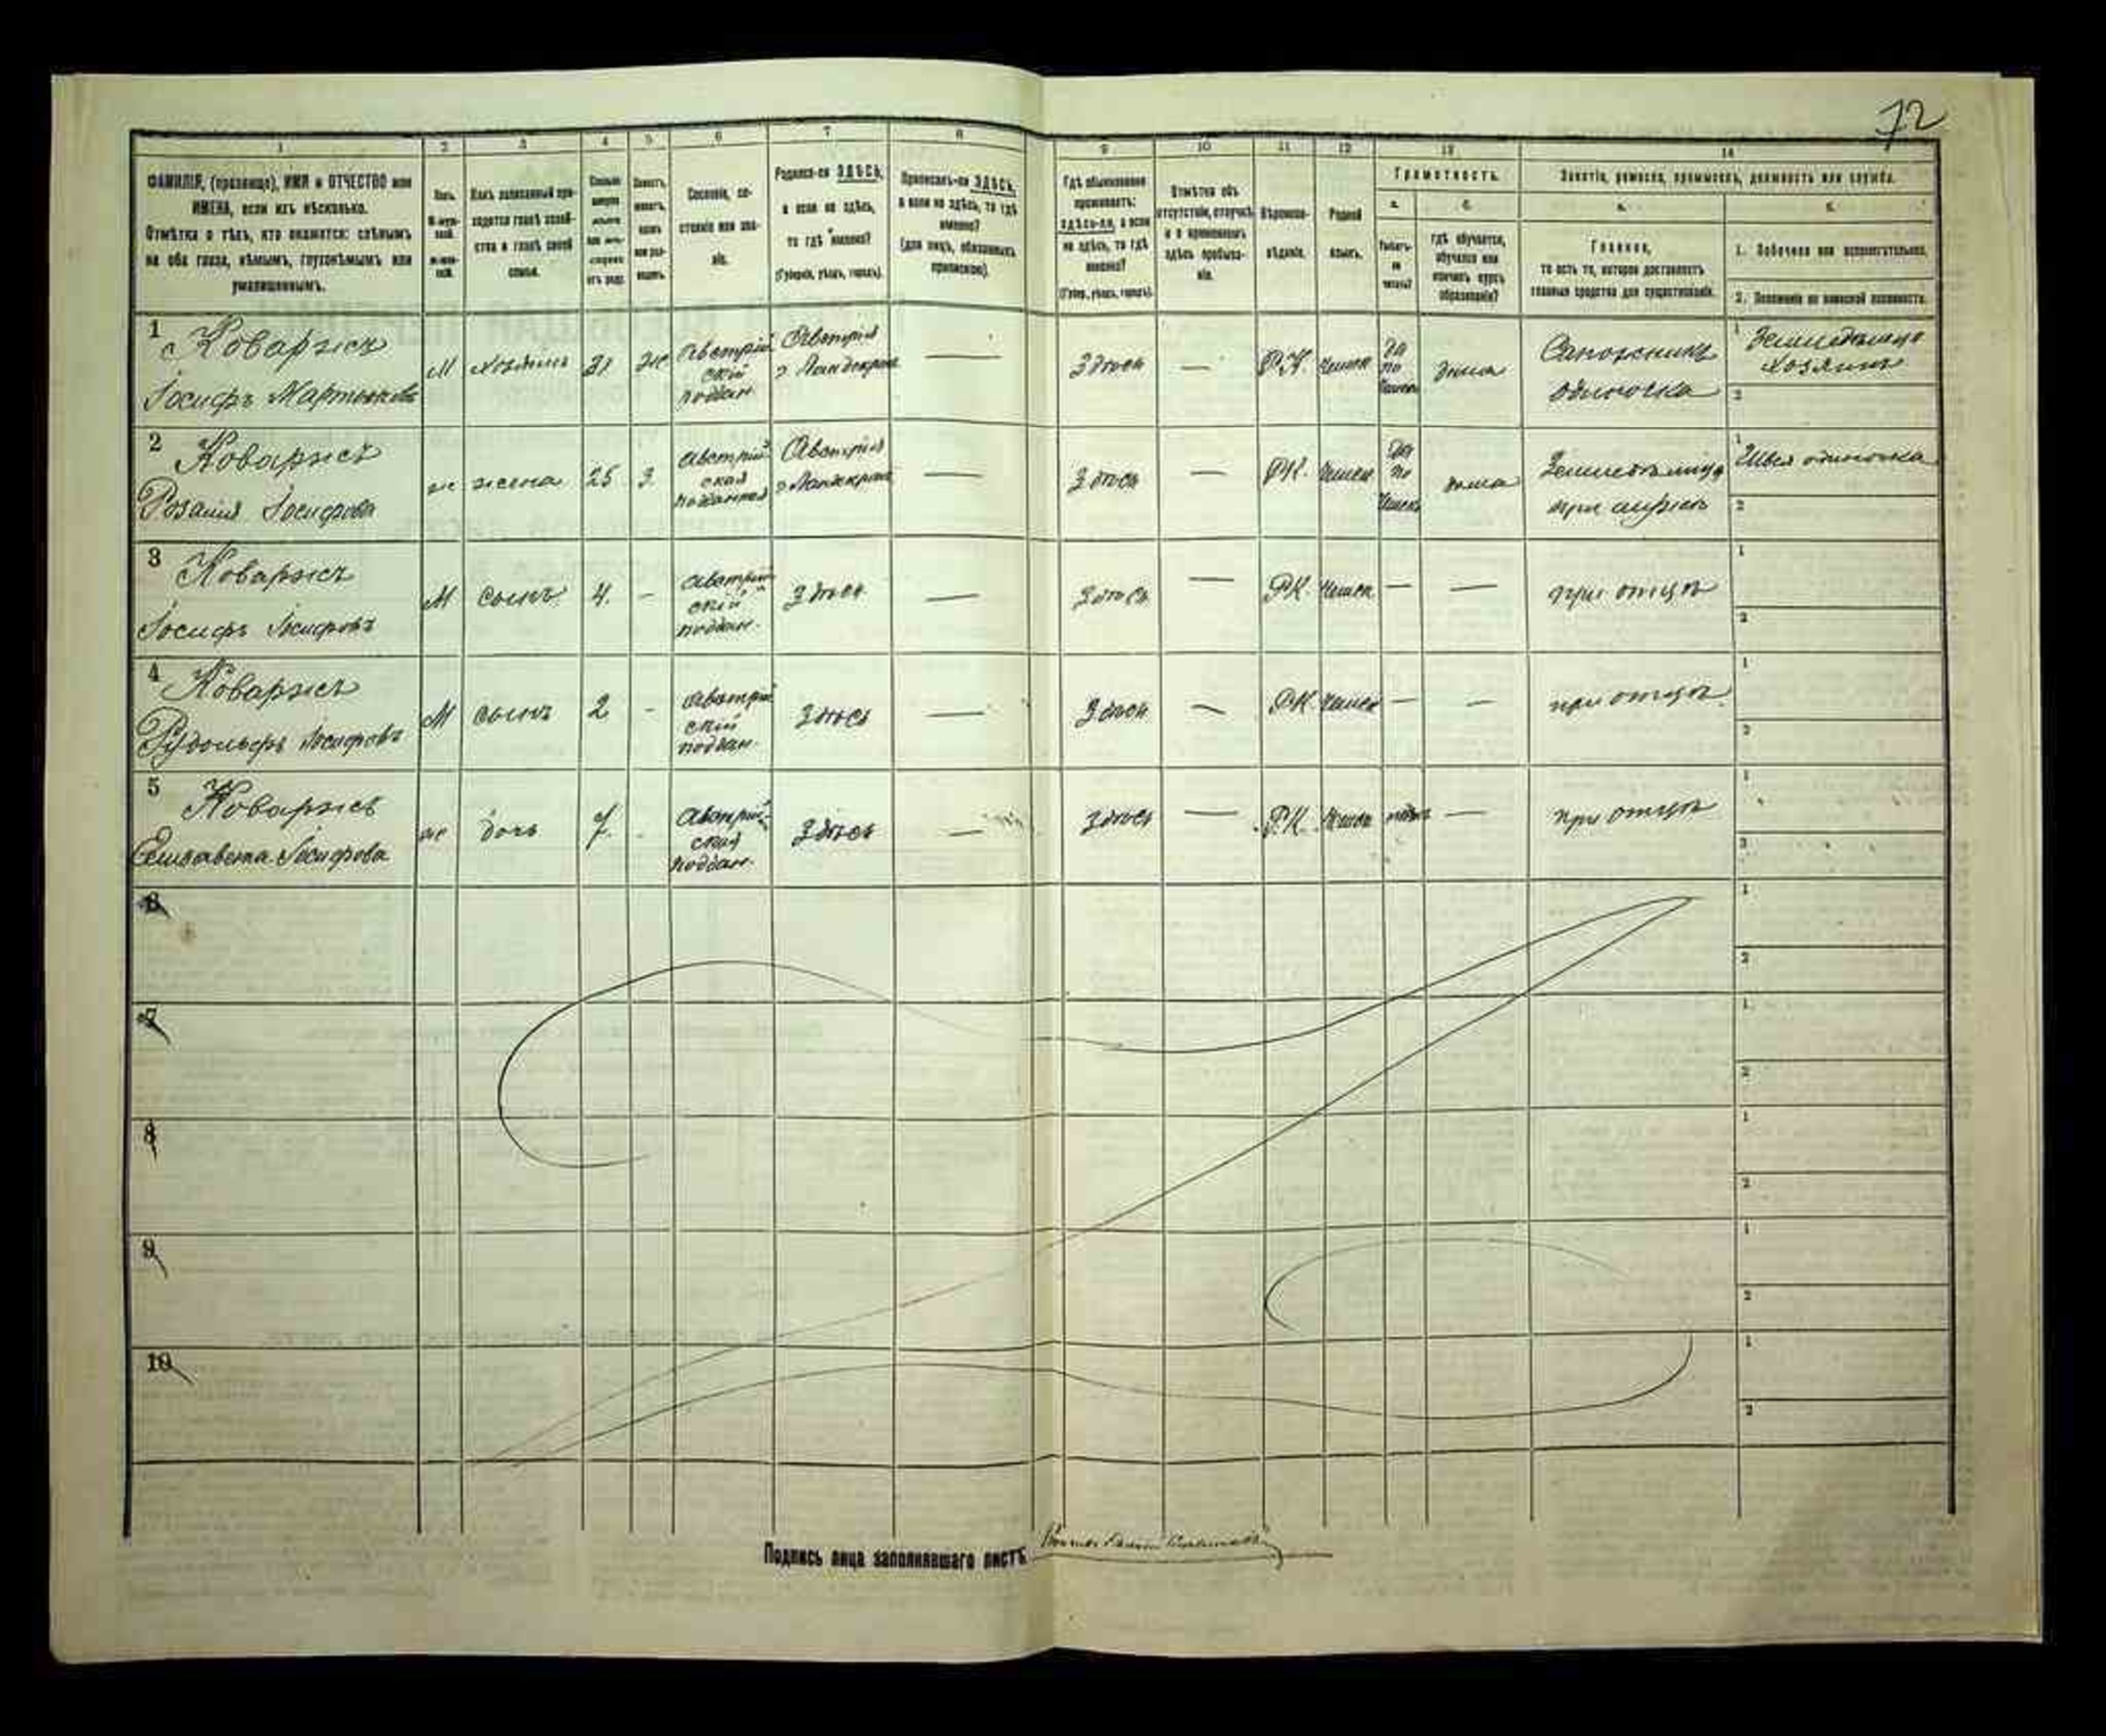 72
1 2 3 4 5 6 7 8 9 10 11 12 13 14
ФАМИЛІЯ, (прозвище), ИМЯ и ОТЧЕСТВО или
ИМЕНА, если ихъ нѣсколько.
Отмѣтка о тѣхъ, кто окажется: слѣпымъ
на оба глаза, нѣмымъ, глухонѣмымъ или
умалишеннымъ.
Сословіе, со-
стояніе или зва-
ніе.
Родился-ли ЗДѢСЬ,
а если не здѣсь,
то гдѣ именно?
(Губернія, уѣздъ, городъ).
Приписанъ-ли ЗДѢСЬ,
а если не здѣсь, то гдѣ
именно?
(для лицъ, обязанныхъ
припискою).
Гдѣ обыкновенно
проживаетъ:
здѣсь-ли, а если
не здѣсь, то гдѣ
именно?
(Губер., уѣздъ, городъ).
Отмѣтка объ
отсутствіи, отлучкѣ
и о временномъ
здѣсь пребыва-
ніи.
Вѣроиспо-
вѣданіе.
Родной
языкъ.
Грамотность.
а. б.
гдѣ обучается,
обучался или
кончилъ курсъ
образованія?
Занятіе, ремесло, промыселъ, должность или служба.
а. б.
Главное,
то есть то, которое доставляетъ
главныя средства для существованія.
1. Побочное или вспомогательное.
2. Положеніе по воинской повинности.
1 Коваржъ
Іосифъ
М хозяинъ 31 ж Австрій
ский
поддан.
Австрія
г. Ландскрон
— здѣсь — Р.К. чешск да
по
чешск
дома Сапожникъ
одиночка
1 Земледѣлецъ
хозяинъ
2
2 Коваржъ
Розалія Іосифова
ж жена 25 з. австрій
ская
подданная
Австрія
г. Ландскрон
— здѣсь — Р.К. чешск да
по
чешск
дома Земледѣлица
при мужѣ
1 Швея одиночка
2
3 Коваржъ
Іосифъ Іосифовъ
М сынъ 4. - австрій
ский
поддан.
здѣсь — здѣсь — Р.К. чешск — — при отцѣ
1
2
4 Коваржъ
Рудольфъ Іосифовъ
М сынъ 2 - австрій
ский
поддан.
здѣсь — здѣсь — Р.К. чешск — — при отцѣ.
1
2
5 Коваржъ
Елисавета Іосифова
ж дочь австрій
ская
поддан.
здѣсь — здѣсь — Р.К. чешск нѣтъ — при отцѣ
1
2
6
1
2
7
1
2
8
1
2
9
1
2
10
1
2
Подпись лица заполнявшаго листъ